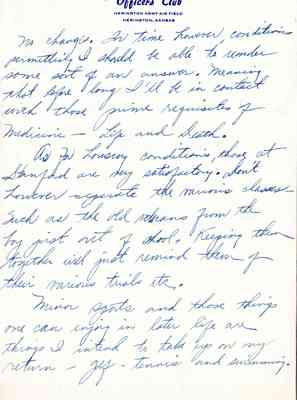 Officers' Club
HERINGTON ARMY AIR FIELD
HERINGTON, KANSAS
no changes. In time however conditions
permitting, I should be able to render
some sort of an answer. Meaning
that before long I'll be in contact
with those prime requisites of
Medicine — Life and Death.
As for housing conditions, those at
are very satisfactory. Don't
however separate the various classes
Such as the old veterans from the
boy just out of school. Keeping them
together will just remind them of
their various trials etc.
Minor sports and those things
one can enjoy in later life are
things I intend to take up on my
return — golf - tennis and swimming.